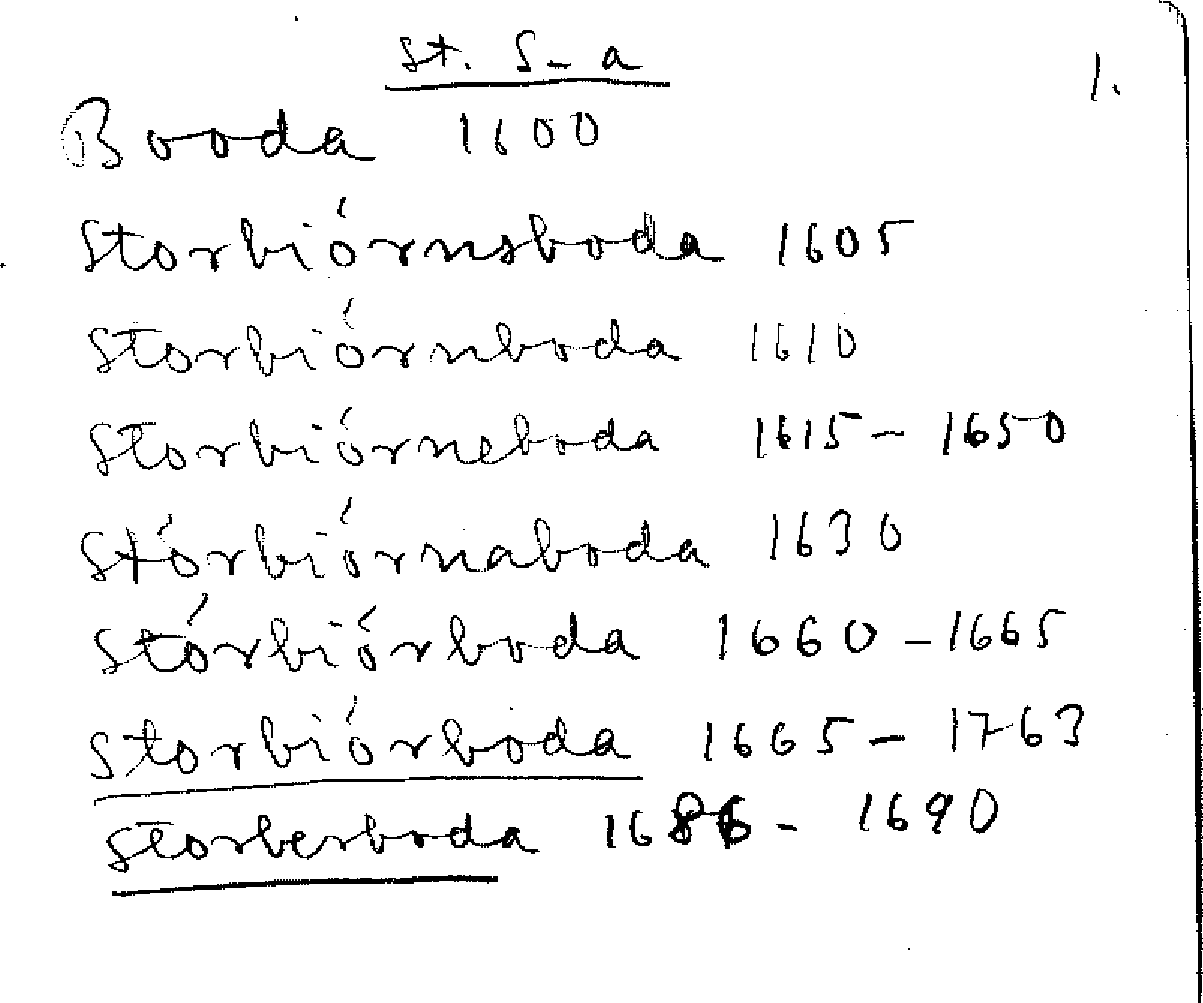 St. S-a
1.
Booda 1600
Storbiórnsboda 1605
Storbiórnboda 1610
Storbiórneboda 1615 - 1650
Stórbiórnaboda 1630
Stórbiórboda 1660 - 1665
Storbiórboda 1665 - 1763
Storberboda 1686 - 1690